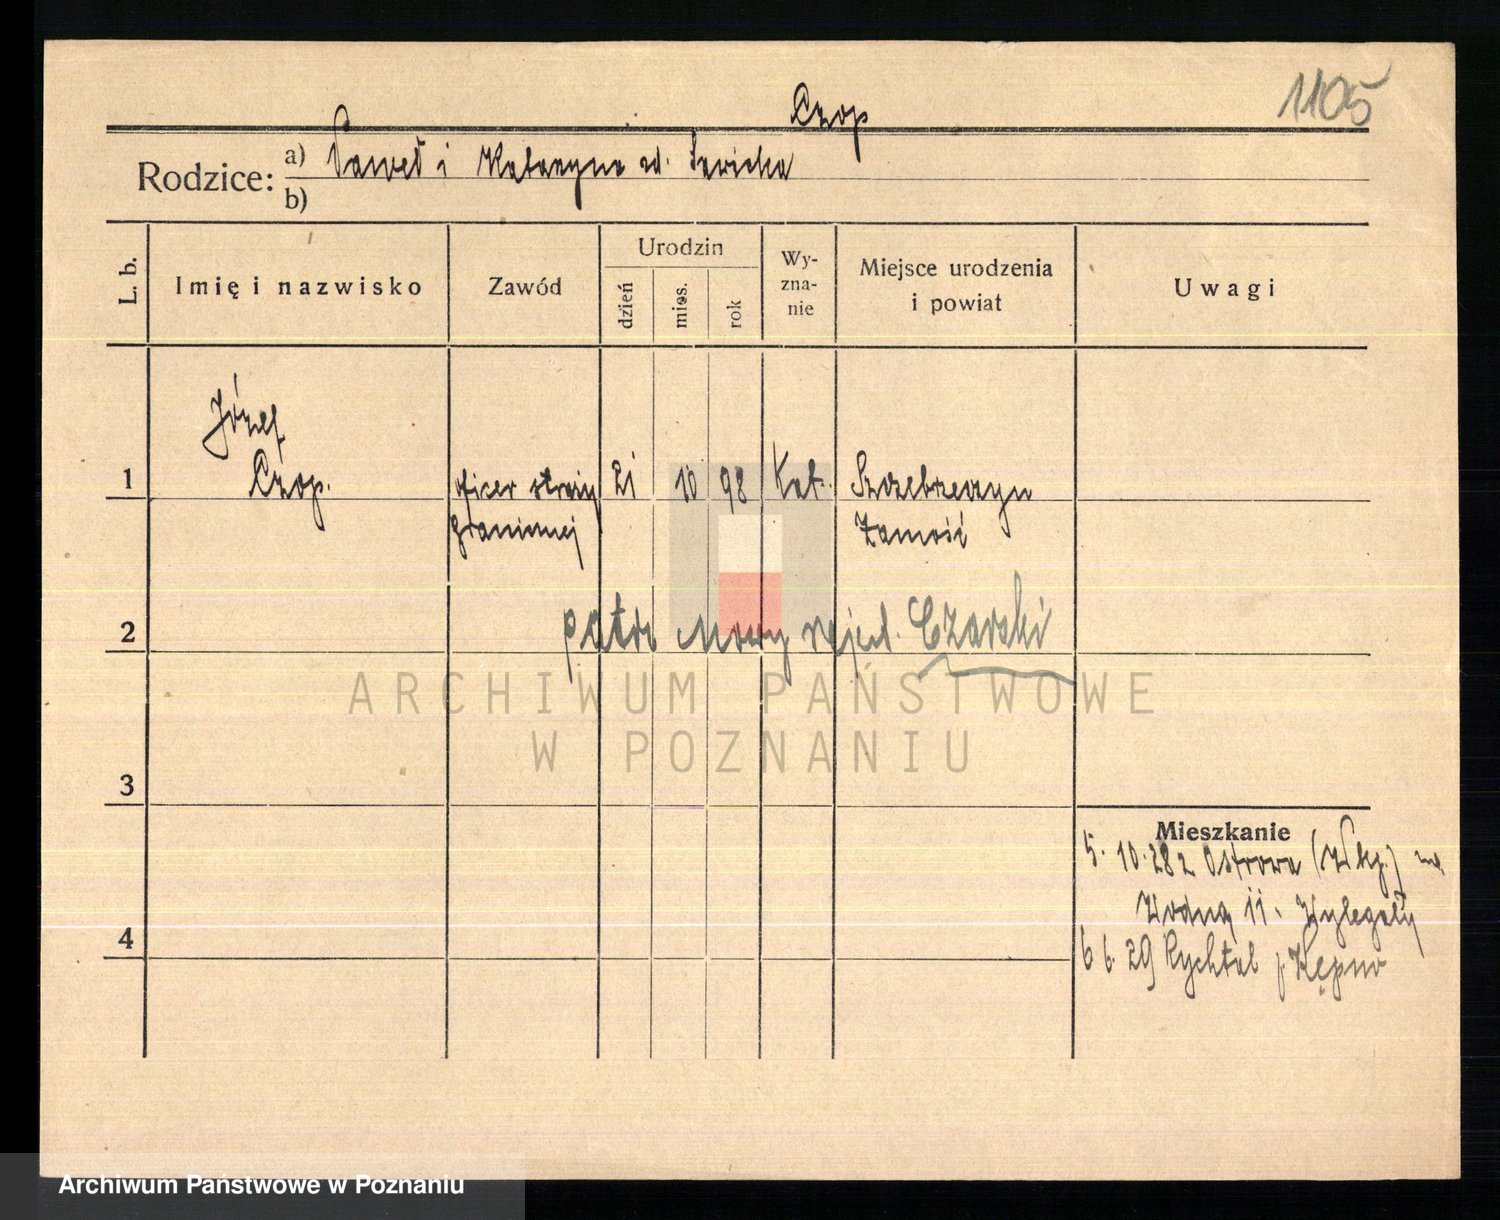 1105
Czop
Rodzice: a) Paweł i Katarzyna zd. Sawicka
b)
L. b.
Imię i nazwisko
Zawód
Urodzin
dzień
mies.
rok
Wy-
zna-
nie
Miejsce urodzenia
i powiat
Uwagi
Józef
1 Czop. oficer straży 21 10 98 Kat. Szczebrzeszyn
granicznej Zamość
2 patrz Nowy Czarski
ARCHIWUM PAŃSTWOWE
W POZNANIU
3
Mieszkanie
5. 10. 28 z Ostrowa (Wlkp.)
4 Wodną 11.
6 6. 29 Rychtal p. Kępno
Archiwum Państwowe w Poznaniu